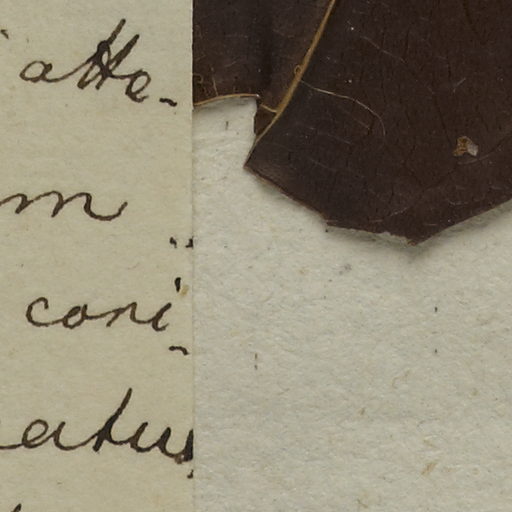 atte-
m
cori-
atus